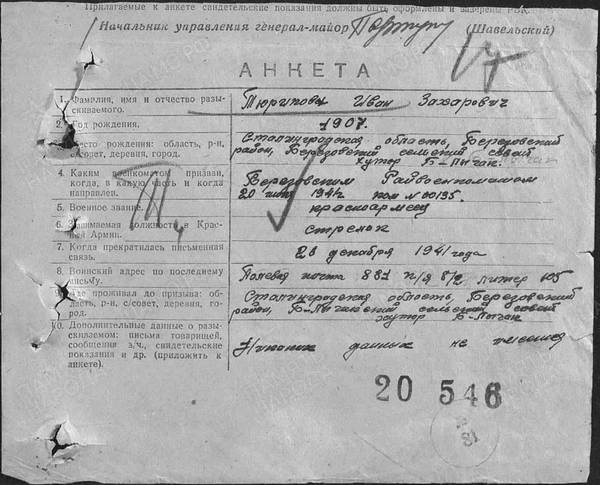 Прилагаемые к анкете свидетельские показания должны быть оформлены и заверены РВК.
Начальник управления генерал-майор (Шавельский)
АНКЕТА
1. Фамилия, имя и отчество разыскиваемого. Иван Захарович
2. Год рождения. 1907.
Место рождения: область, р-н, с/совет, деревня, город. Сталинградская область, Березовский
район, Березовский сельский совет
хутор
4. Каким военкоматом призван, когда, в какую часть и когда направлен. Березовским Райвоенкоматом
20 1941г. ком № 00135.
5. Военное звание. красноармеец
6. Занимаемая должность в Красной Армии. стрелок
7. Когда прекратилась письменная связь. 26 декабря 1941 года
8. Воинский адрес по последнему письму. Полевая почта 881 п/я 8/2 литер 105
9. Где проживал до призыва: область, р-н, с/совет, деревня, город. Сталинградская область, Березовский
район, сельский совет
хутор
10. Дополнительные данные о разыскиваемом: письма товарищей, сообщения в/ч, свидетельские показания и др. (приложить к анкете). Никаких данных не имеется
20 546